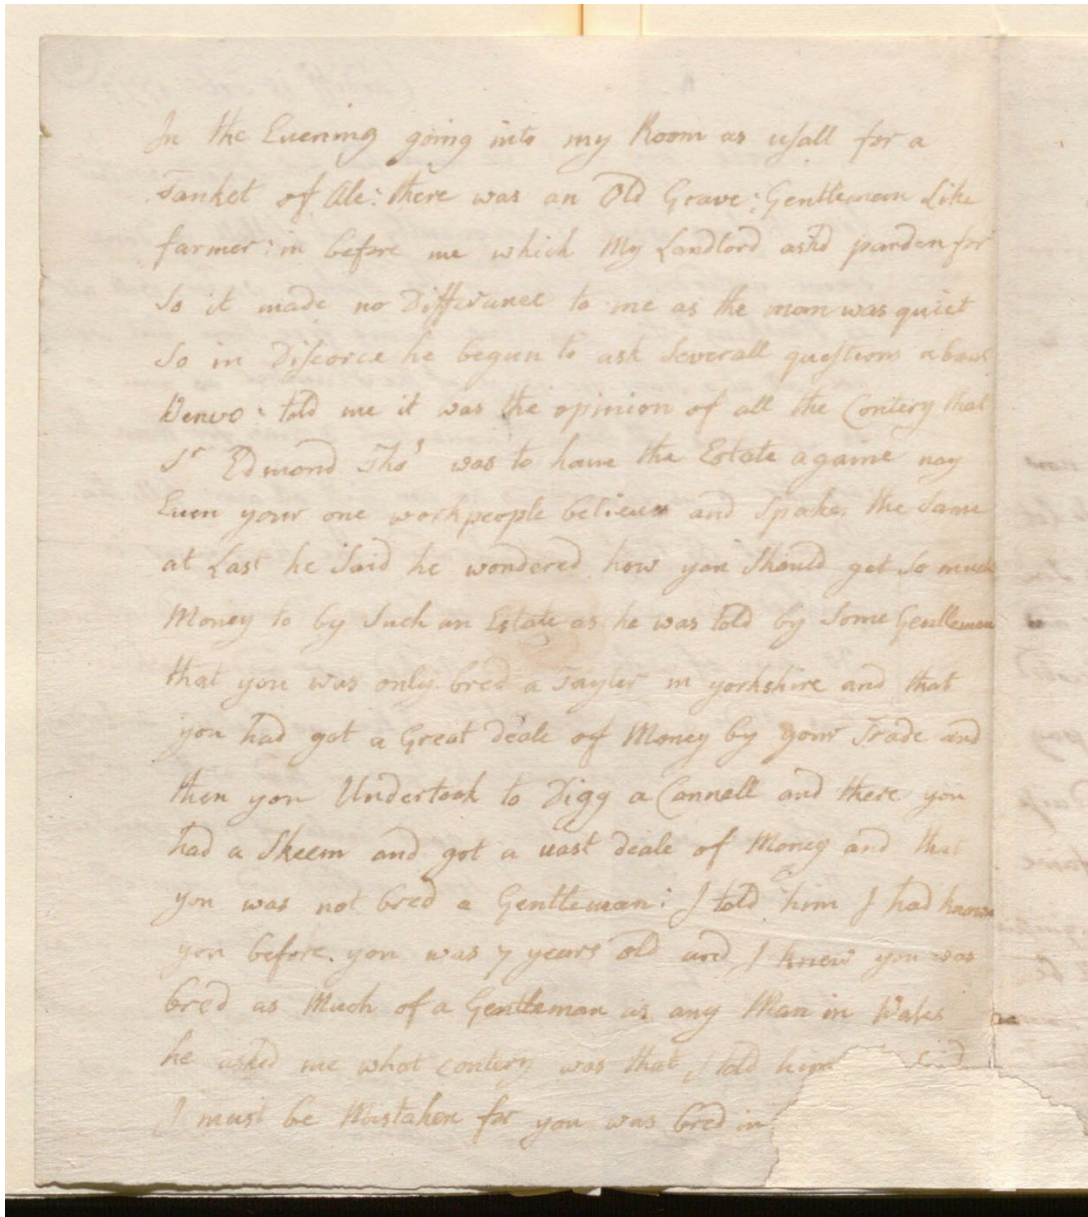 In the Evening going into my Room as usall for a
Tanket of Ale: there was an Old Grave: Gentleman Like
farmer: in before me which My Landlord askd parden for
So it made no Differance to me as the man was quiet
So in Discorce he begun to ask Severall questions about
Wenvo: told me it was the opinion of all the Contery that
Sr Edmond Thos was to have the Estate againe nay
Even your one workpeople believes and Speakes the Same
at Last he Said he wondered how you Should get So much
Money to by Such an Estate as he was told by Some Gentleman
that you was only bred a Tayler in yorkshire and that
you had got a Great deale of Money by your Trade and
then you Undertook to Digg a Cannell and there you
had a Skeem and got a vast deale of Money and that
you was not bred a Gentleman: I told him I had known
you before you was 7 years old and I knew you was
bred as Much of a Gentleman as any Man in Wales
he asked me what contery was that I told him Said
I must be Mistaken for you was bred in